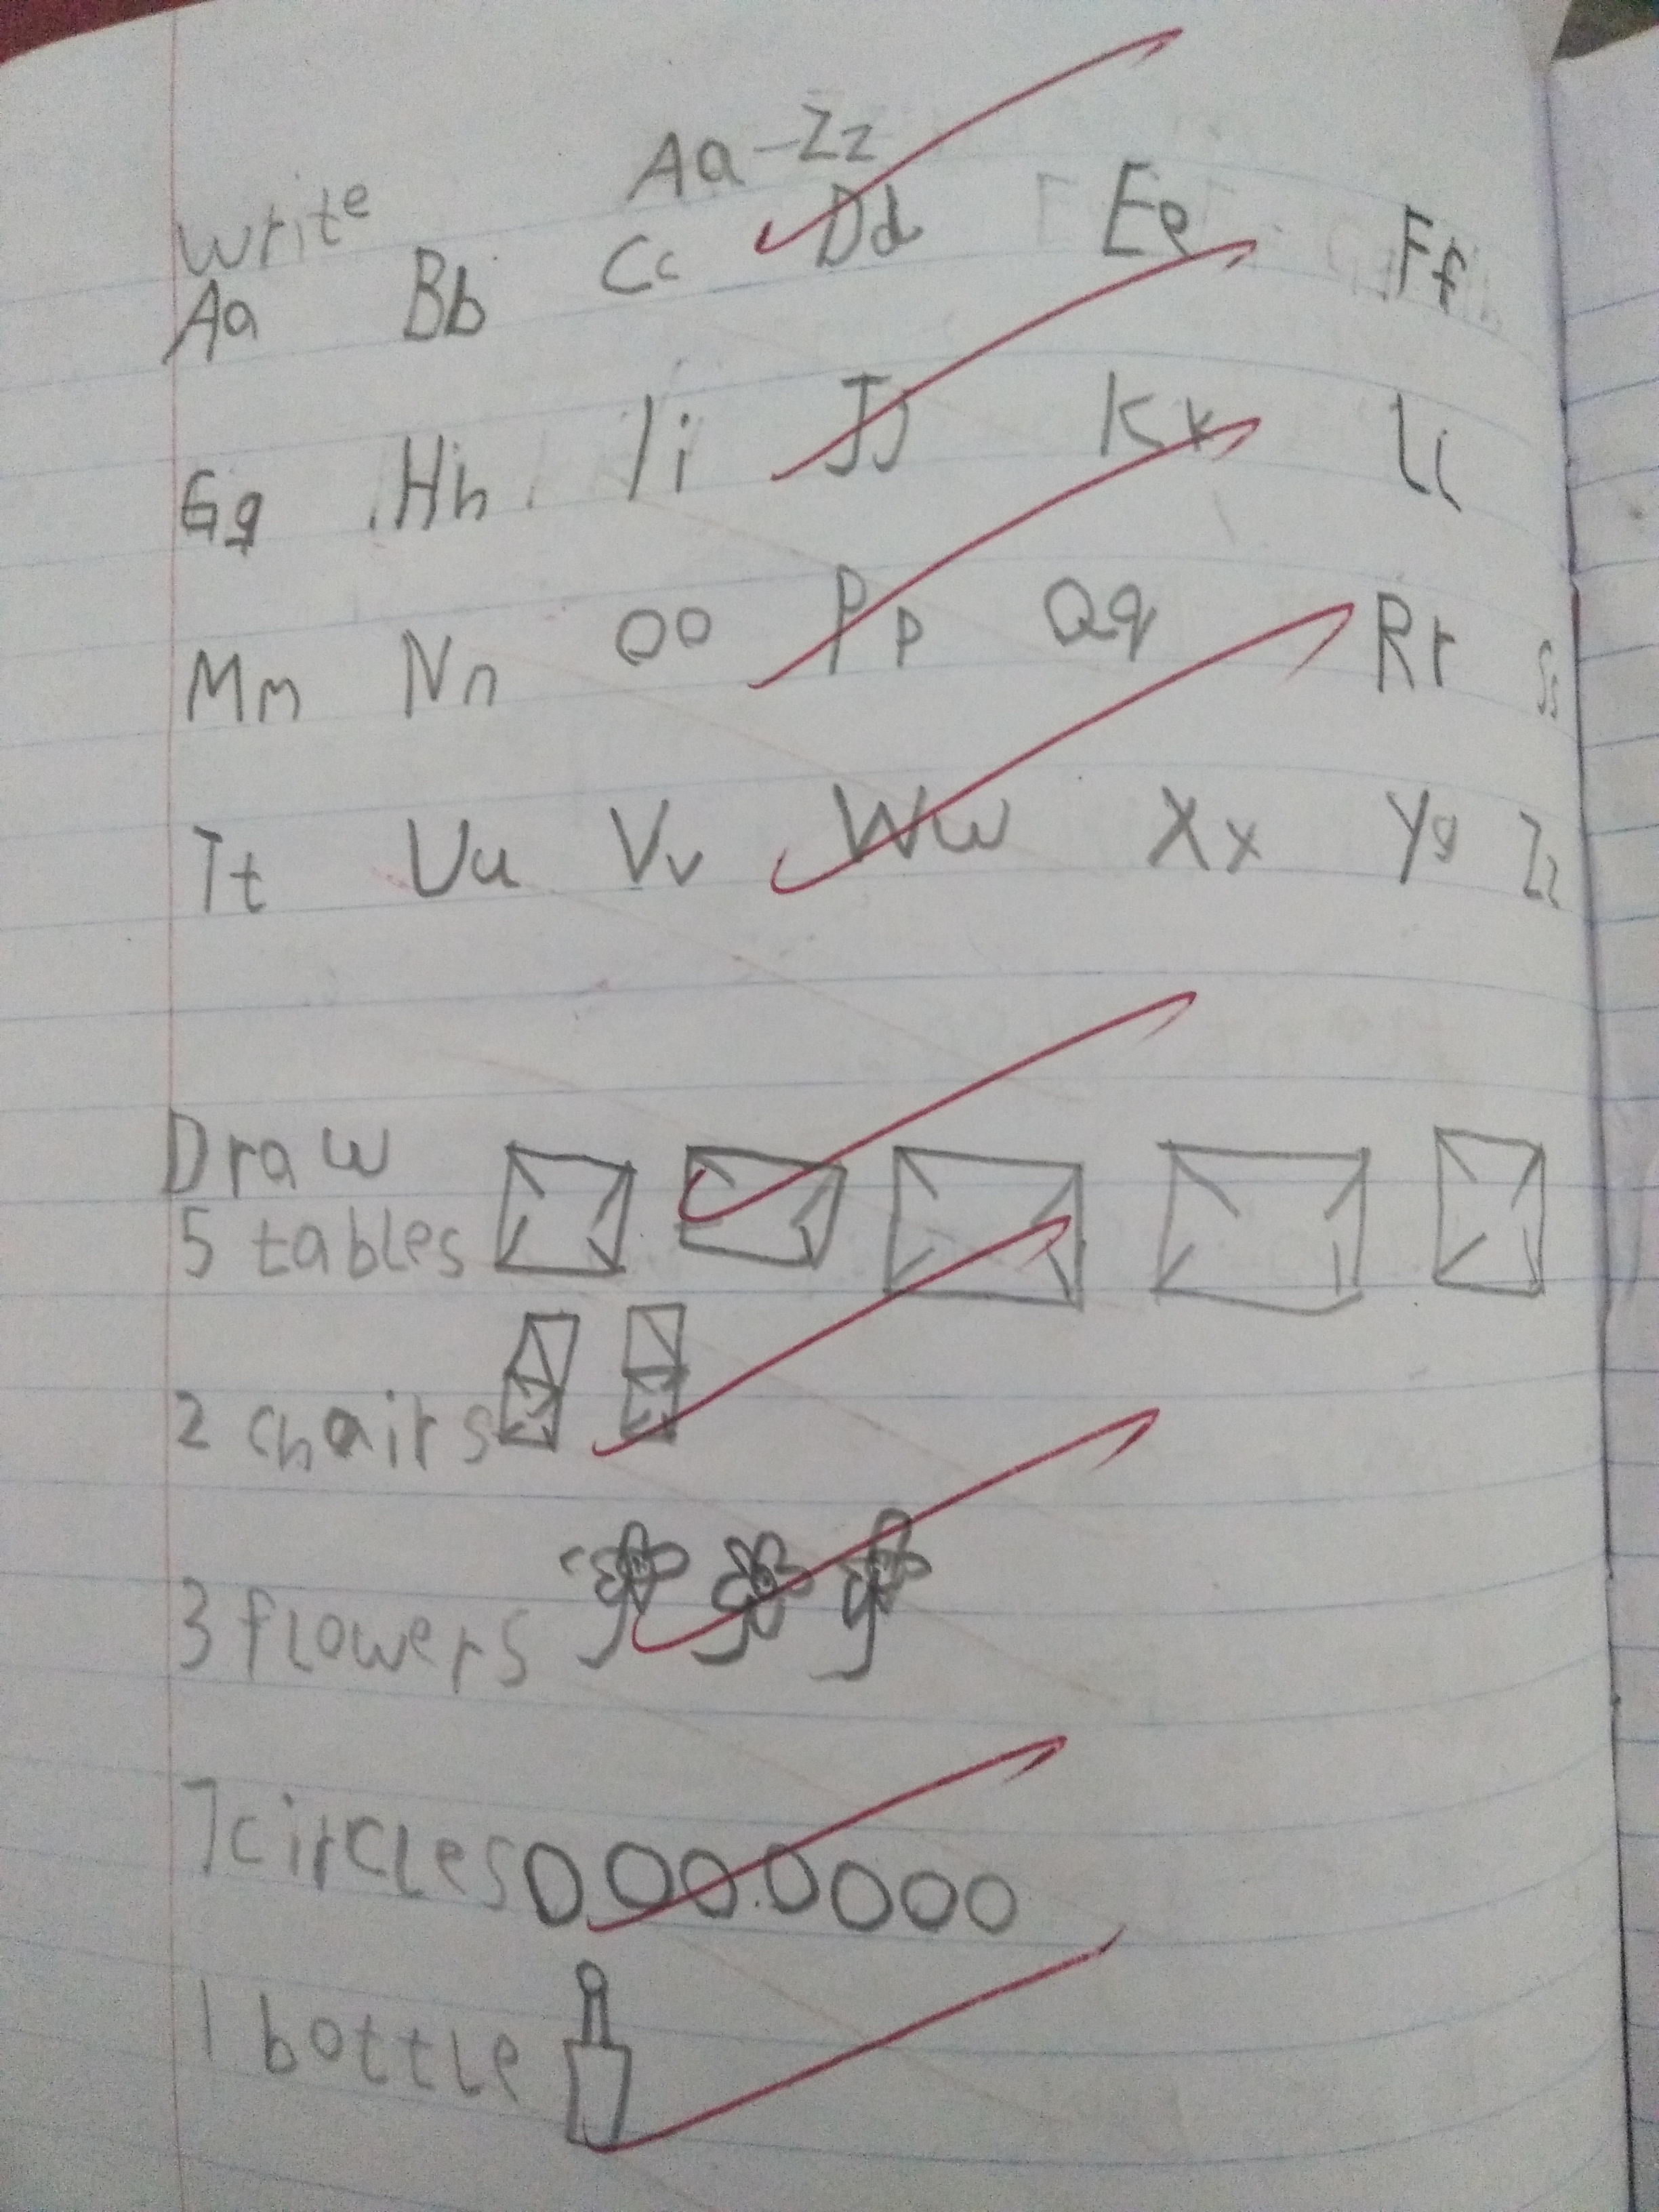 Aa - Zz
Write
Aa Bb Cc Dd Ee Ff
Gg Hh Ii Jj Kk Ll
Mm Nn Oo Pp Qq Rr Ss
Tt Uu Vv Ww Xx Yy Zz
Draw
5 tables
2 chairs
3 flowers
7 circles
1 bottle